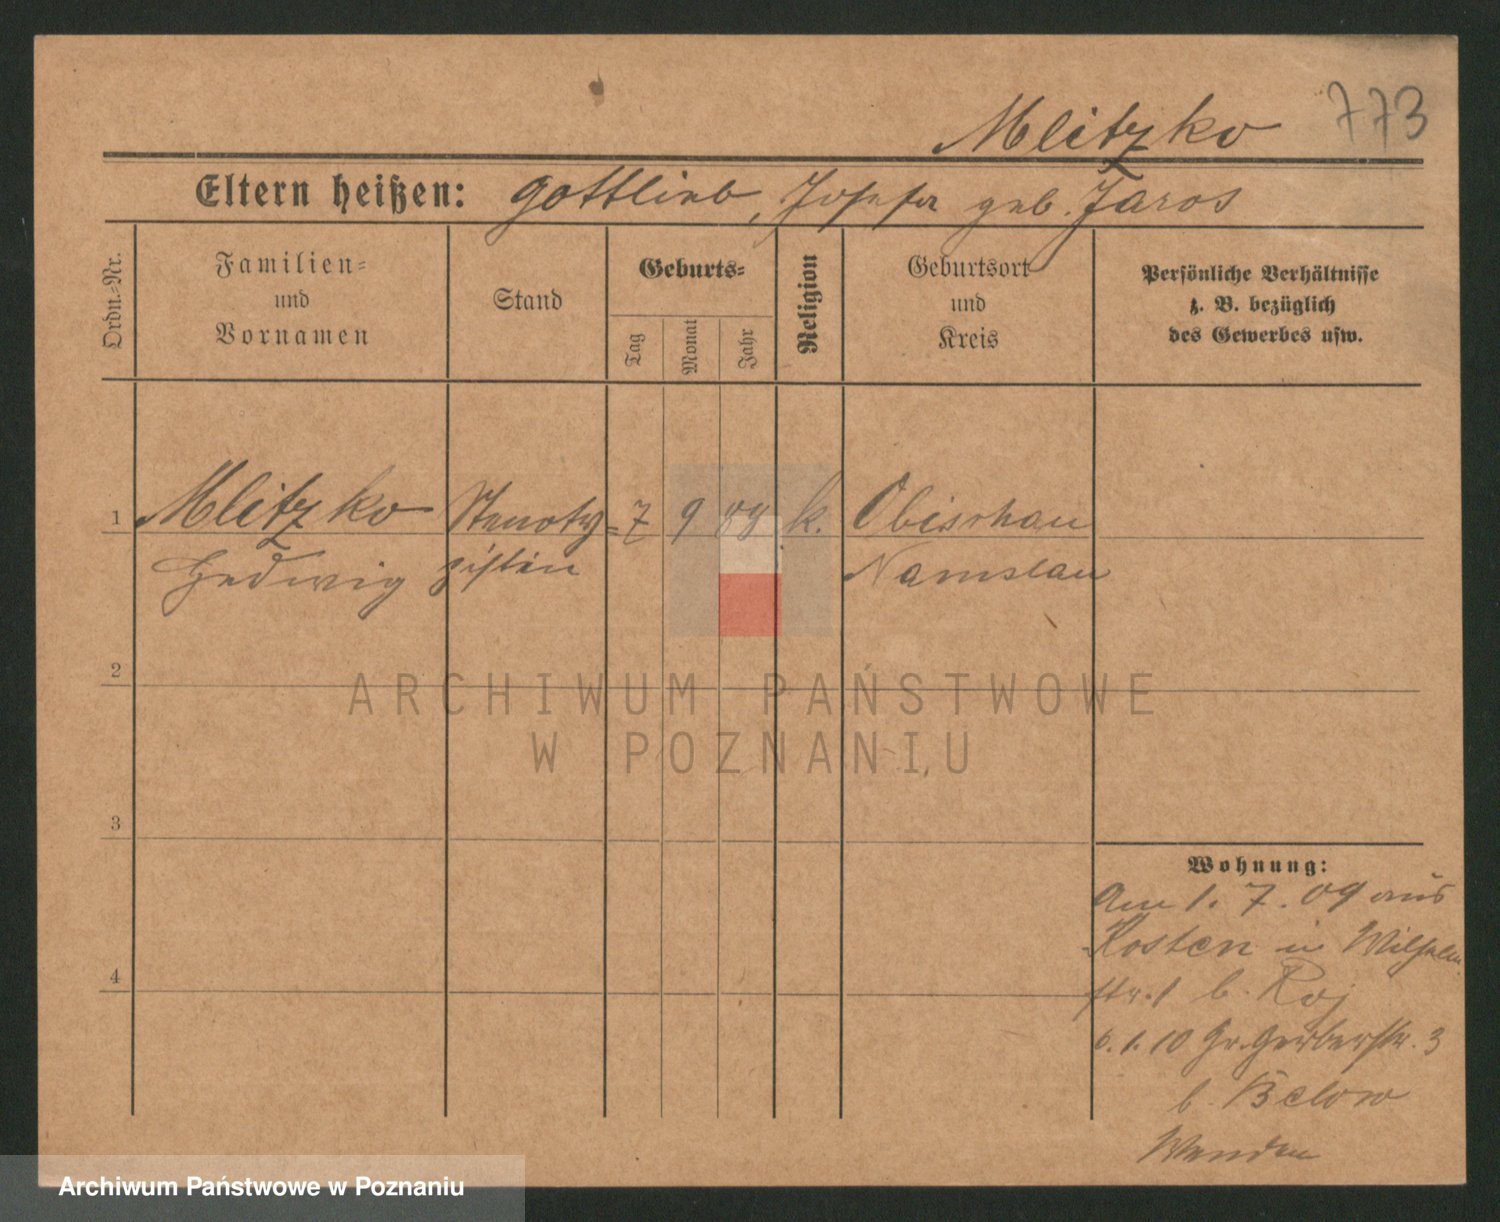 Mlitzko 773
Eltern heißen: Gottlieb, Josefa geb. Jaros
Ordn.-Nr.
Familien-
und
Vornamen
Stand
Geburts-
Tag
Monat
Jahr
Religion
Geburtsort
und
Kreis
Persönliche Verhältnisse
z. B. bezüglich
des Gewerbes usw.
1 Mlitzko Stenoty= 7 9 88 k. Obischau
Hedwig pistin Namslau
2
3
4
Wohnung:
Am 1. 7. 09 aus
Kosten in Wilhelm
str. 1 b. Roj
6. 1. 10 Gr. Gerberstr. 3
b. Below
Wenden
ARCHIWUM PAŃSTWOWE
W POZNANIU
Archiwum Państwowe w Poznaniu